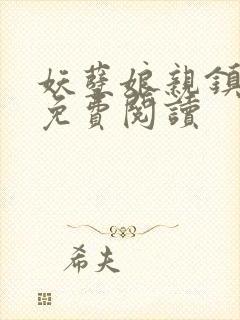 妖孽娘親鎮
免費閱讀
希夫